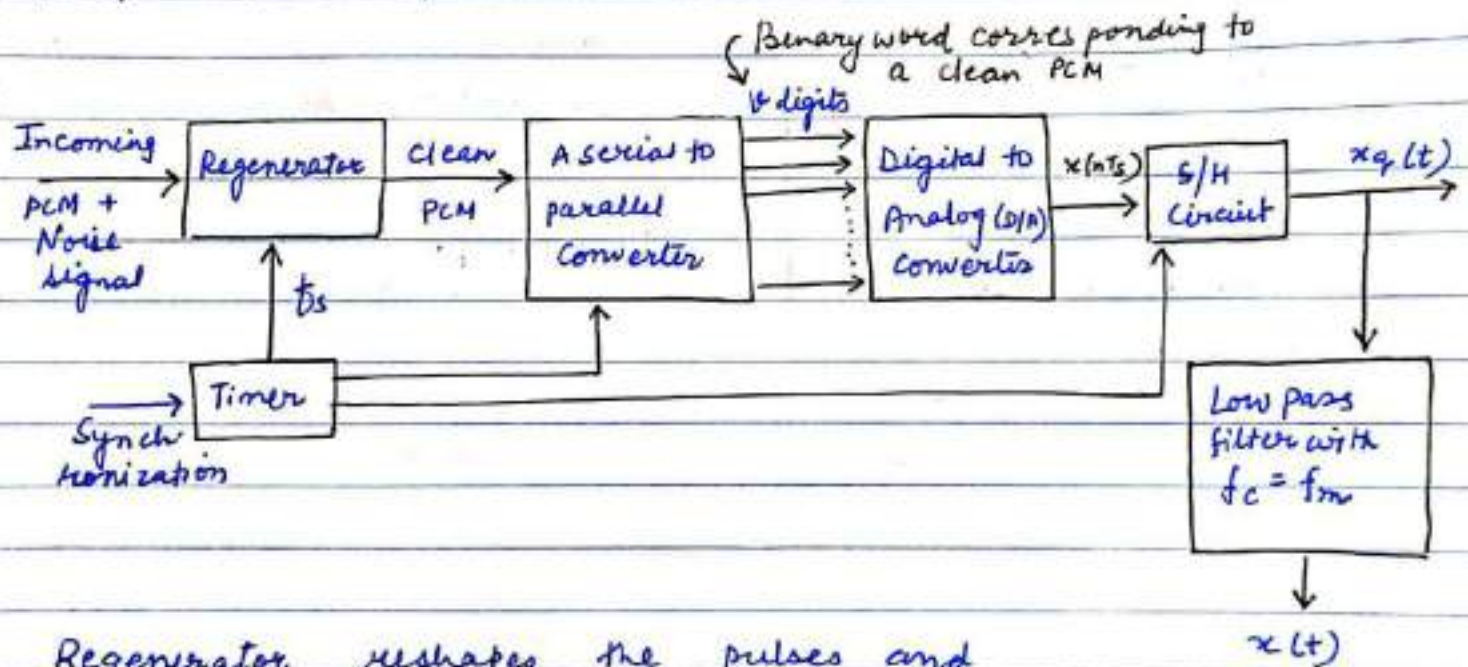 Benary word corres ponding to
a clean PCM
v digits
Incoming
PCM +
Noise
signal
Regenerator
Clean
PCM
A serial to
parallel
Converter
Digital to
Analog (D/A)
Converter
x(nTs)
S/H
Circuit
xq(t)
fs
Timer
Synch
ronization
Low pass
filter with
fc = fm
x(t)
Regenerator reshapes the pulses and